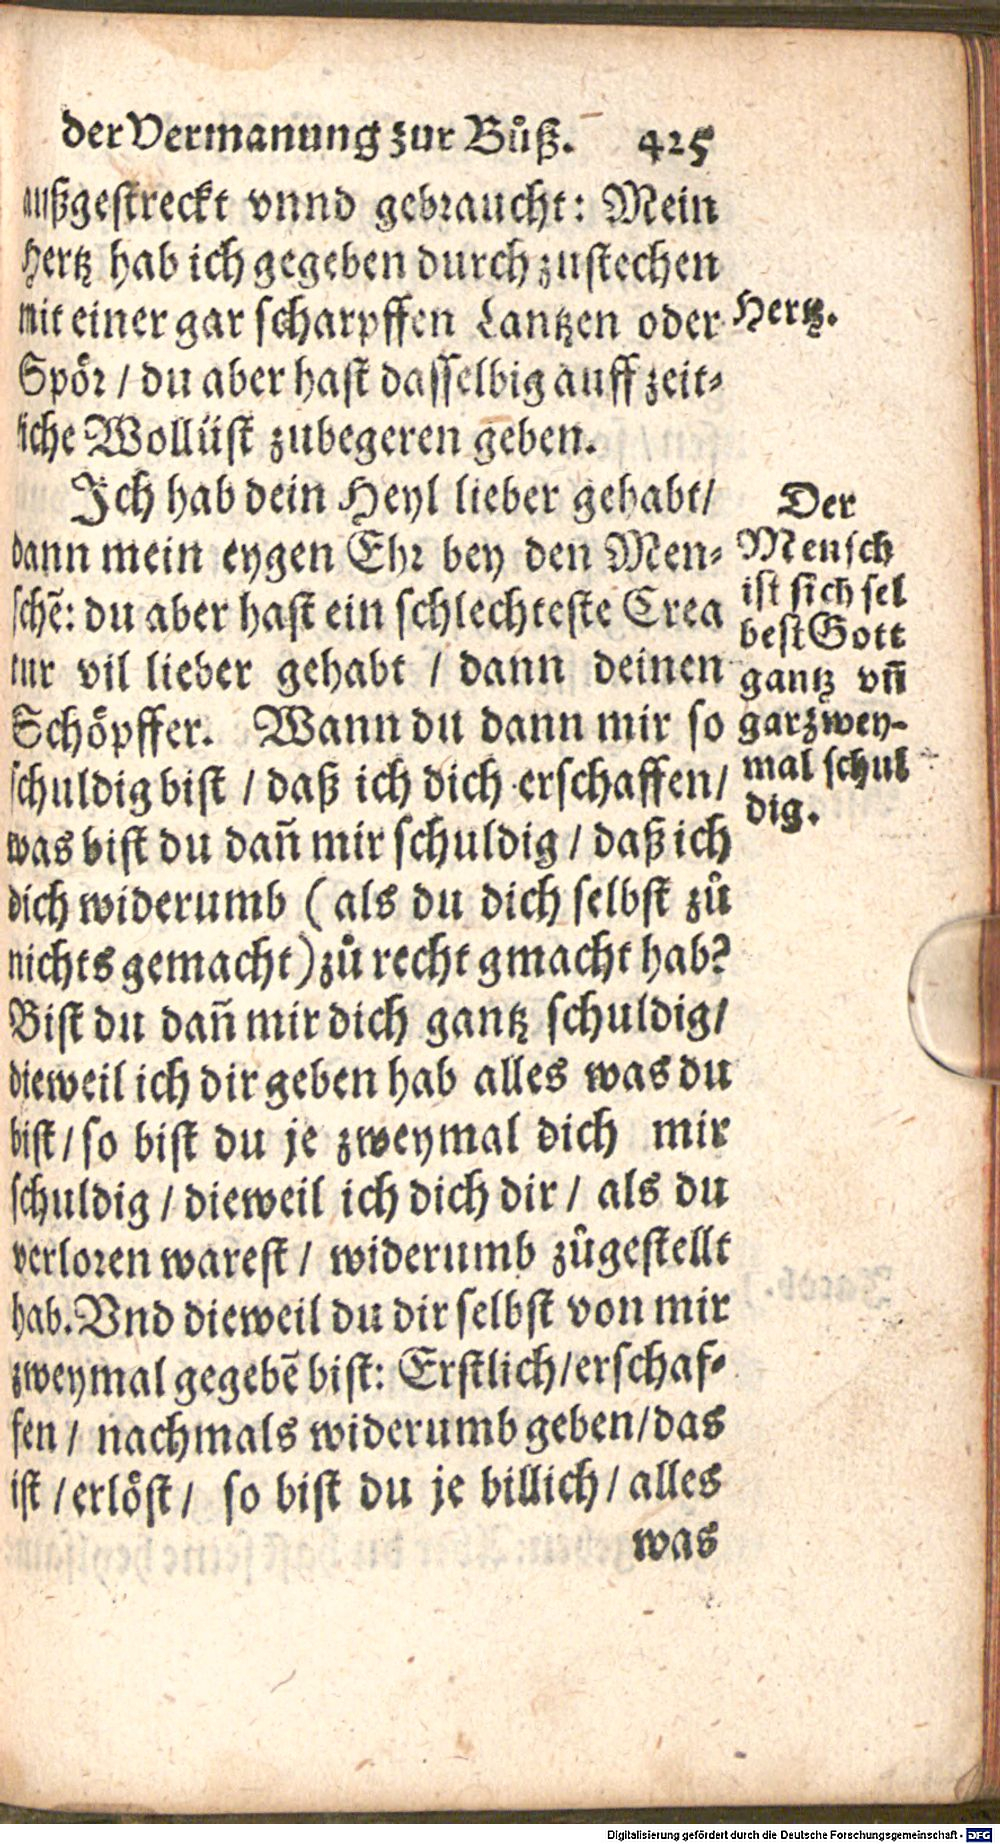 der Vermanung zur Bůß. 425
außgestreckt vnnd gebraucht: Mein
Hertz hab ich gegeben durch zustechen
mit einer gar scharpffen Lantzen oder
Spör / du aber hast dasselbig auff zeit-
liche Wollüst zubegeren geben.
Ich hab dein Heyl lieber gehabt/
dann mein eygen Ehr bey den Men-
schẽ: du aber hast ein schlechteste Crea
tur vil lieber gehabt / dann deinen
Schöpffer. Wann du dann mir so
schuldig bist / daß ich dich erschaffen/
was bist du dañ mir schuldig / daß ich
dich widerumb (als du dich selbst zů
nichts gemacht) zů recht gmacht hab?
Bist du dañ mir dich gantz schuldig/
dieweil ich dir geben hab alles was du
bist / so bist du je zweymal dich mir
schuldig / dieweil ich dich dir / als du
verloren warest / widerumb zůgestellt
hab. Vnd dieweil du dir selbst von mir
zweymal gegebẽ bist: Erstlich/erschaf-
fen / nachmals widerumb geben/das
ist / erlöst / so bist du je billich / alles
was
Hertz.
Der
Mensch
ist sich sel
best Gott
gantz vñ
gar zwey-
mal schul
dig.
Digitalisierung gefördert durch die Deutsche Forschungsgemeinschaft - DFG